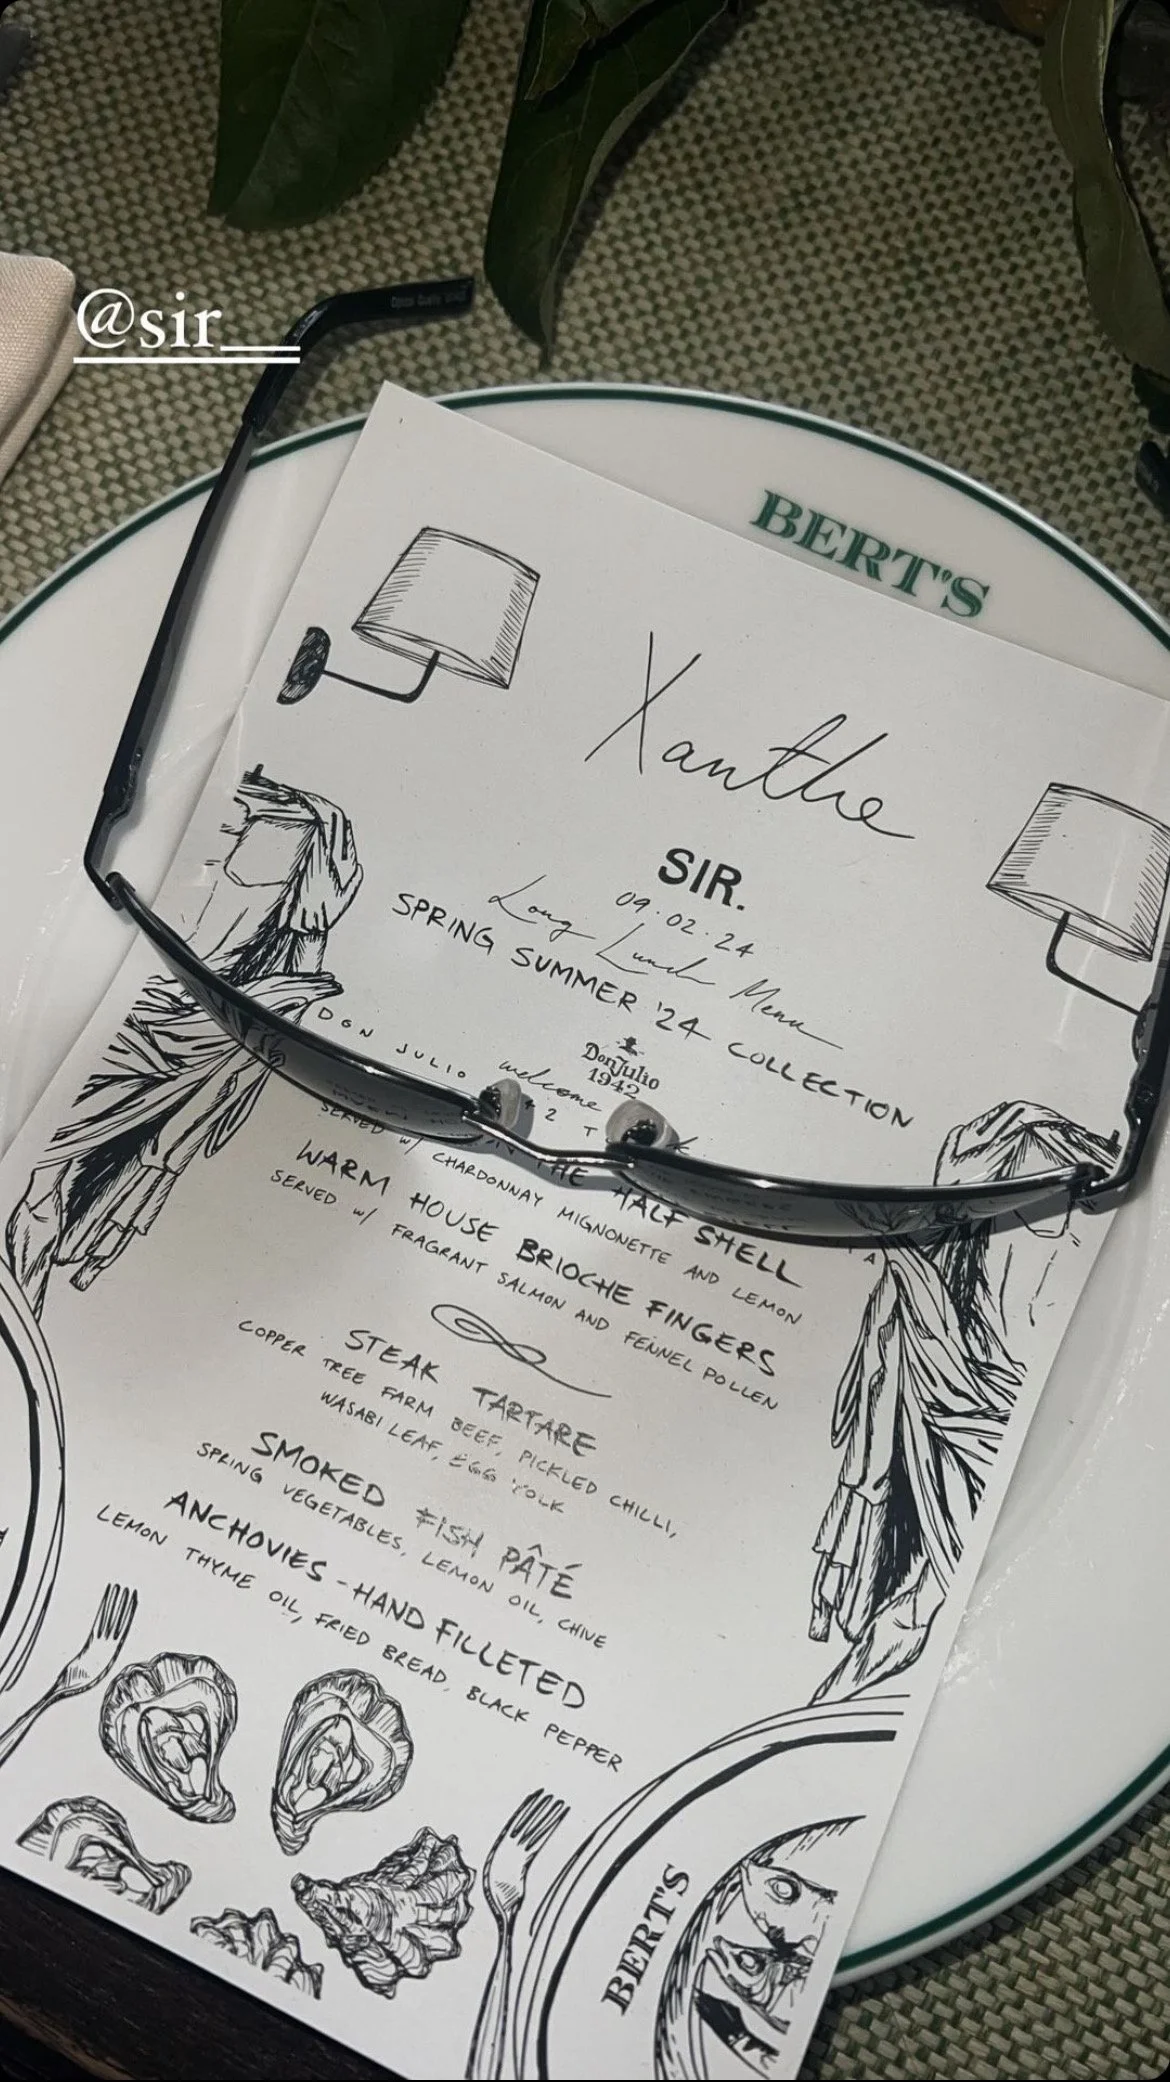 @sir__
BERT'S
Xanthe
SIR.
09.02.24
Long Lunch Menu
SPRING SUMMER '24 COLLECTION
Don Julio
1942
welcome
DON JULIO
THE HALF SHELL
SERVED w/ CHARDONNAY MIGNONETTE AND LEMON
WARM HOUSE BRIOCHE FINGERS
SERVED w/ FRAGRANT SALMON AND FENNEL POLLEN
STEAK TARTARE
COPPER TREE FARM BEEF, PICKLED CHILLI,
WASABI LEAF, EGG YOLK
SMOKED FISH PÂTÉ
SPRING VEGETABLES, LEMON OIL, CHIVE
ANCHOVIES - HAND FILLETED
LEMON THYME OIL, FRIED BREAD, BLACK PEPPER
BERT'S